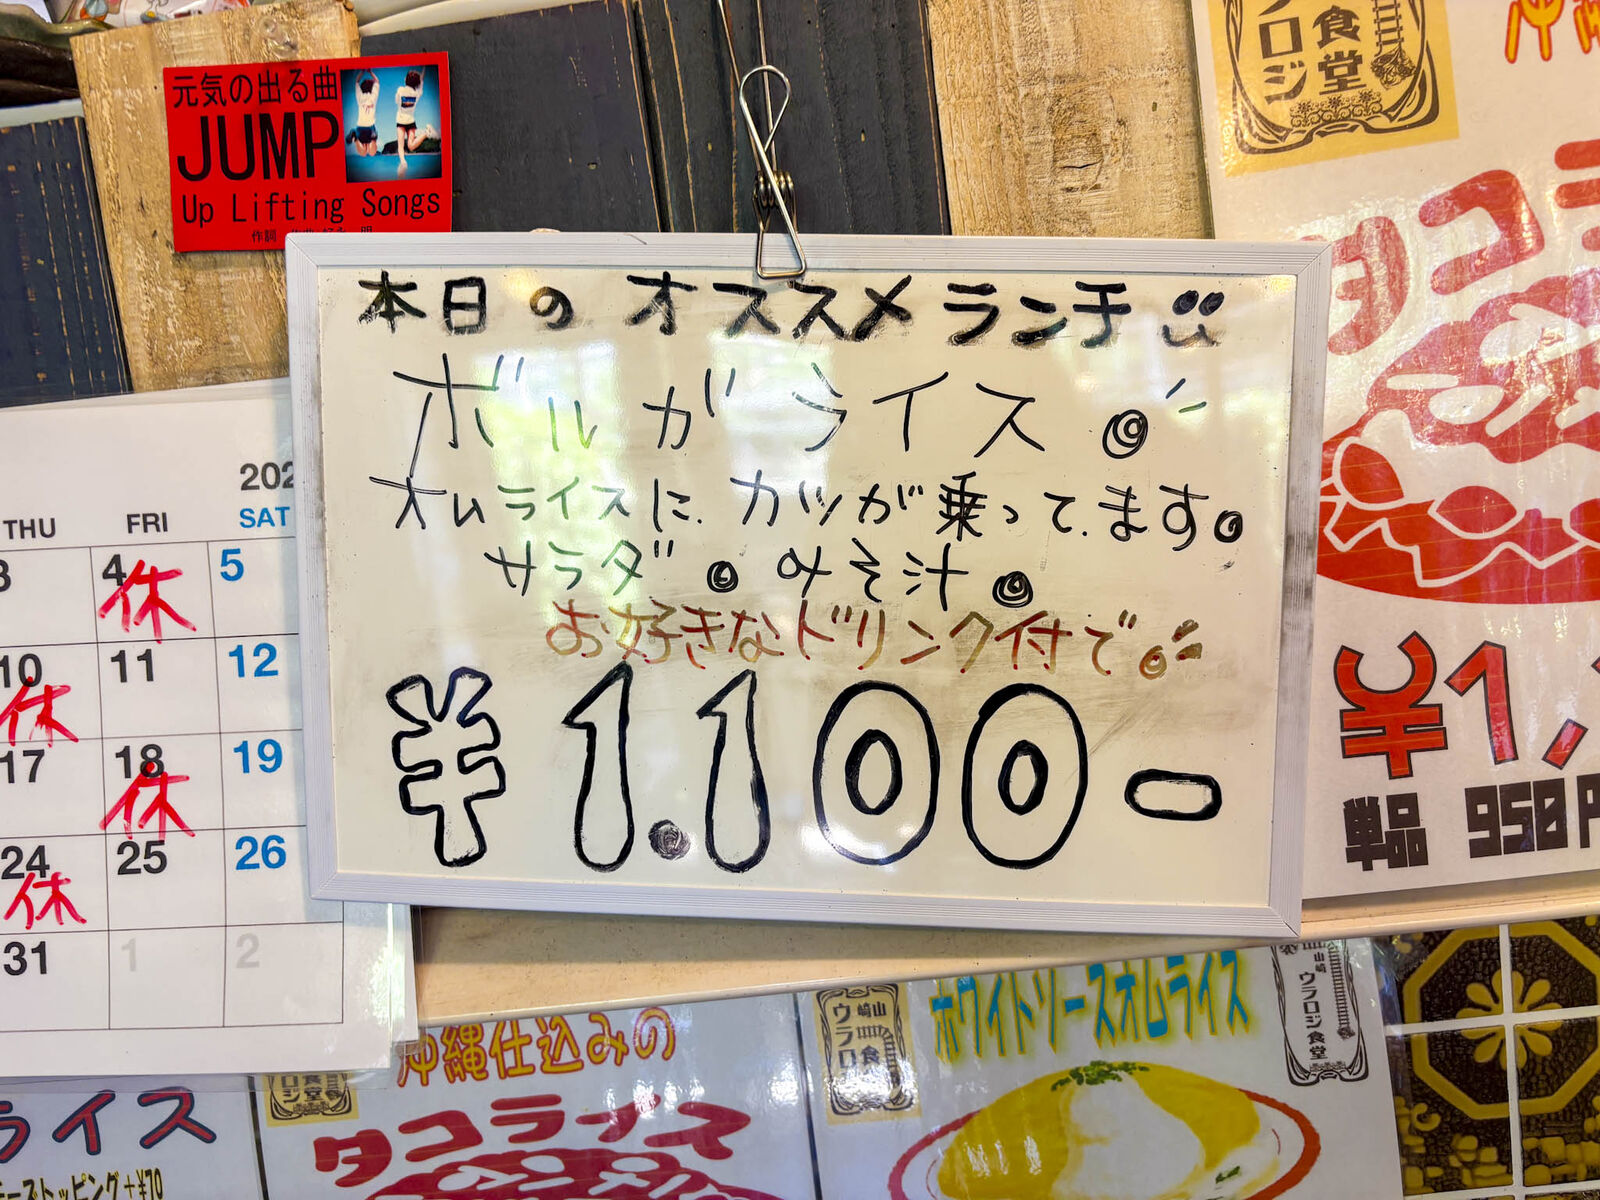 元気の出る曲
JUMP
Up Lifting Songs
食堂
ロジ
タコ
¥1,
単品 950
本日のオススメランチ
ボルガライス。
オムライスに、カツが乗ってます。
サラダ。みそ汁。
お好きなドリンク付で。
¥1.100-
202
THU FRI SAT
3 4 5
休
10 11 12
休
17 18 19
休
24 25 26
休
31 1 2
ライス
ーズトッピング+¥70
食堂
ロジ
沖縄仕込みの
タコライス
山崎
ウラロジ
食堂
ホワイトソースオムライス
山崎
ウラロジ食堂